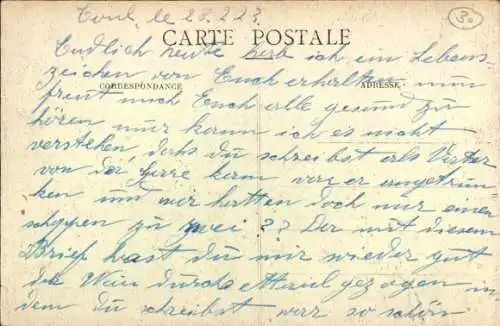 Toul, le 28.2.23
30
CARTE POSTALE
Endlich heute hab ich ein Lebens
zeichen von Euch erhalten nun
CORRESPONDANCE ADRESSE
freut mich Euch alle gesund zu
hören nur kann ich es nicht
verstehen, dahs du schreibst als Vater
von der kam war er angetrun
ken und wir hatten doch nur einen
schoppen zu zwei ?? Der mit diesem
Brief hast du mir wieder gut
den Wein durchs Maul gezogen in
dem du schreibst war so schön